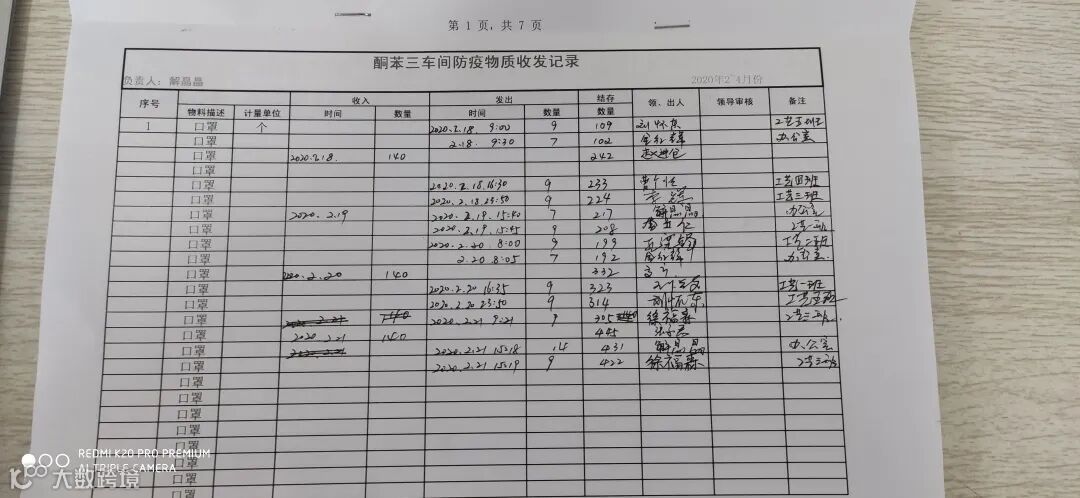 第 1 页, 共 7 页
酮苯三车间防疫物质收发记录
负责人：解晶晶 2020年2~4月份
序号 收入 发出 结存 领、出人 领导审核 备注
物料描述 计量单位 时间 数量 时间 数量 数量
1 口罩 个 2020.2.18. 9:00 9 109
口罩 2.18. 9:30 7 102 办公室
口罩 2020.2.18. 140 242
口罩
口罩 2020.2.18.16:30 9 233 工艺四班
口罩 2020.2.18 23:50 9 224 工艺三班
口罩 2020.2.19 2020.2.19.15:40 7 217 解晶晶 办公室
口罩 2020.2.19.15:45 9 208
口罩 2020.2.20 8:00 9 199 工艺二班
口罩 2.20 8:05 7 192 办公室
口罩 2020.2.20 140 332
口罩 2020.2.20 16:35 9 323 工艺一班
口罩 2020.2.20 23:50 9 314 工艺五班
口罩 2020.2.21 9:21 9 305 徐福森
口罩 2020.2.21 140 445
口罩 2020.2.21 15:18 14 431 解晶晶 办公室
口罩 2020.2.21 15:19 9 422 徐福森
口罩
口罩
口罩
口罩
口罩
口罩
口罩
口罩
REDMI K20 PRO PREMIUM
AI TRIPLE CAMERA
大数跨境